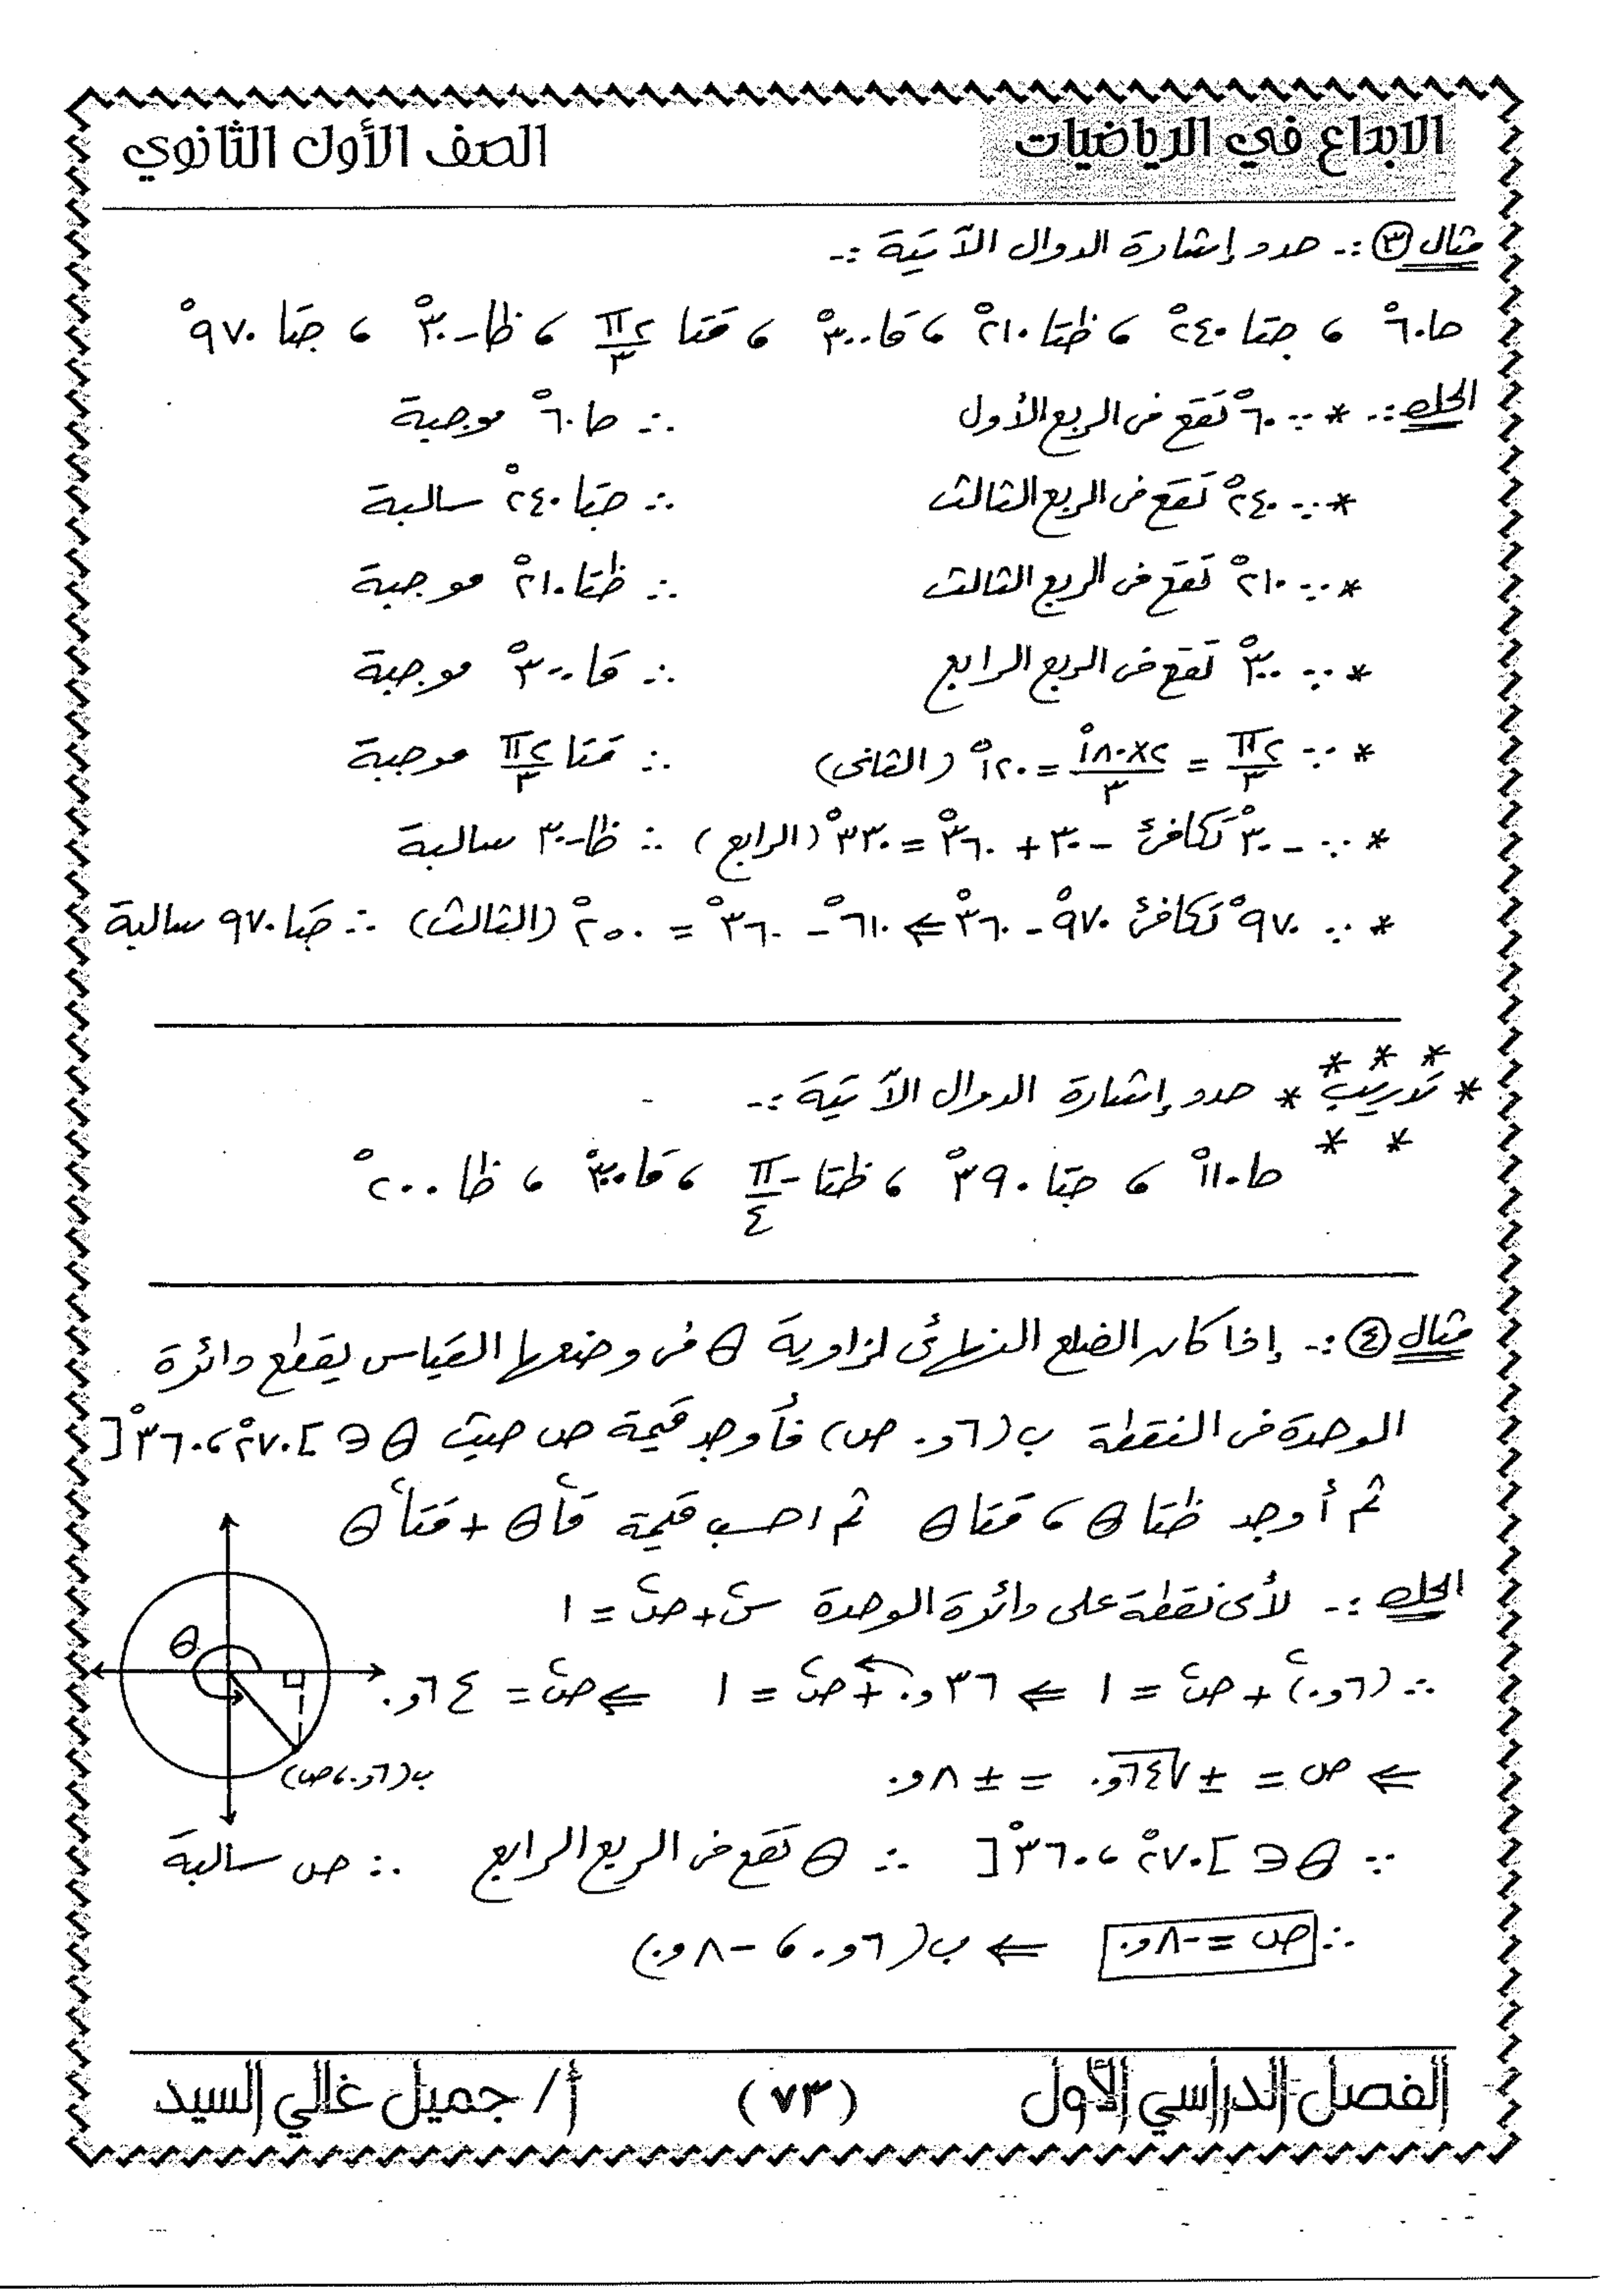 الابداع في الرياضيات
الصف الأول الثانوي
مثال ③ :- حدد إشارة الدوال الآتية :-
حا ٦٠° ، جتا ٢٤٠° ، ظتا ٢١٠° ، قا ٣٠٠° ، قتا ٢π/٣ ، ظا -٣٠° ، جتا ٩٧٠°
الحل :- * ∵ ٦٠° تقع فى الربع الأول ∴ حا ٦٠° موجبة
* ∵ ٢٤٠° تقع فى الربع الثالث ∴ جتا ٢٤٠° سالبة
* ∵ ٢١٠° تقع فى الربع الثالث ∴ ظتا ٢١٠° موجبة
* ∵ ٣٠٠° تقع فى الربع الرابع ∴ قا ٣٠٠° موجبة
* ∵ ٢π/٣ = ٢×١٨٠°/٣ = ١٢٠° (الثانى) ∴ قتا ٢π/٣ موجبة
* ∵ -٣٠° تكافئ -٣٠ + ٣٦٠° = ٣٣٠° (الرابع) ∴ ظا -٣٠ سالبة
* ∵ ٩٧٠° تكافئ ٩٧٠° - ٣٦٠° ⇐ ٦١٠° - ٣٦٠° = ٢٥٠° (الثالث) ∴ جتا ٩٧٠ سالبة
* تدريب * حدد إشارة الدوال الآتية :-
حا ١١٠° ، جتا ٣٩٠° ، ظتا -π/٤ ، قا ٣٠٠° ، ظا ٢٠٠°
مثال ④ :- إذا كان الضلع النهائى لزاوية θ فى وضعها القياسى يقطع دائرة
الوحدة فى النقطة ب (٦و٠ ، ص) فأوجد قيمة ص حيث θ ∈ ]٢٧٠° ، ٣٦٠°[
ثم أوجد ظتا θ ، قتا θ ثم احسب قيمة قا٢ θ + قتا٢ θ
الحل :- لأى نقطة على دائرة الوحدة س٢ + ص٢ = ١
∴ (٦و٠)٢ + ص٢ = ١ ⇐ ٣٦و٠ + ص٢ = ١ ⇐ ص٢ = ٦٤و٠
θ
ب (٦و٠ ، ص)
⇐ ص = ± √٦٤و٠ = ± ٨و٠
∵ θ ∈ ]٢٧٠° ، ٣٦٠°[ ∴ θ تقع فى الربع الرابع ∴ ص سالبة
∴ ص = -٨و٠ ⇐ ب (٦و٠ ، -٨و٠)
الفصل الدراسي الأول
(٧٣)
أ/ جميل غالي السيد